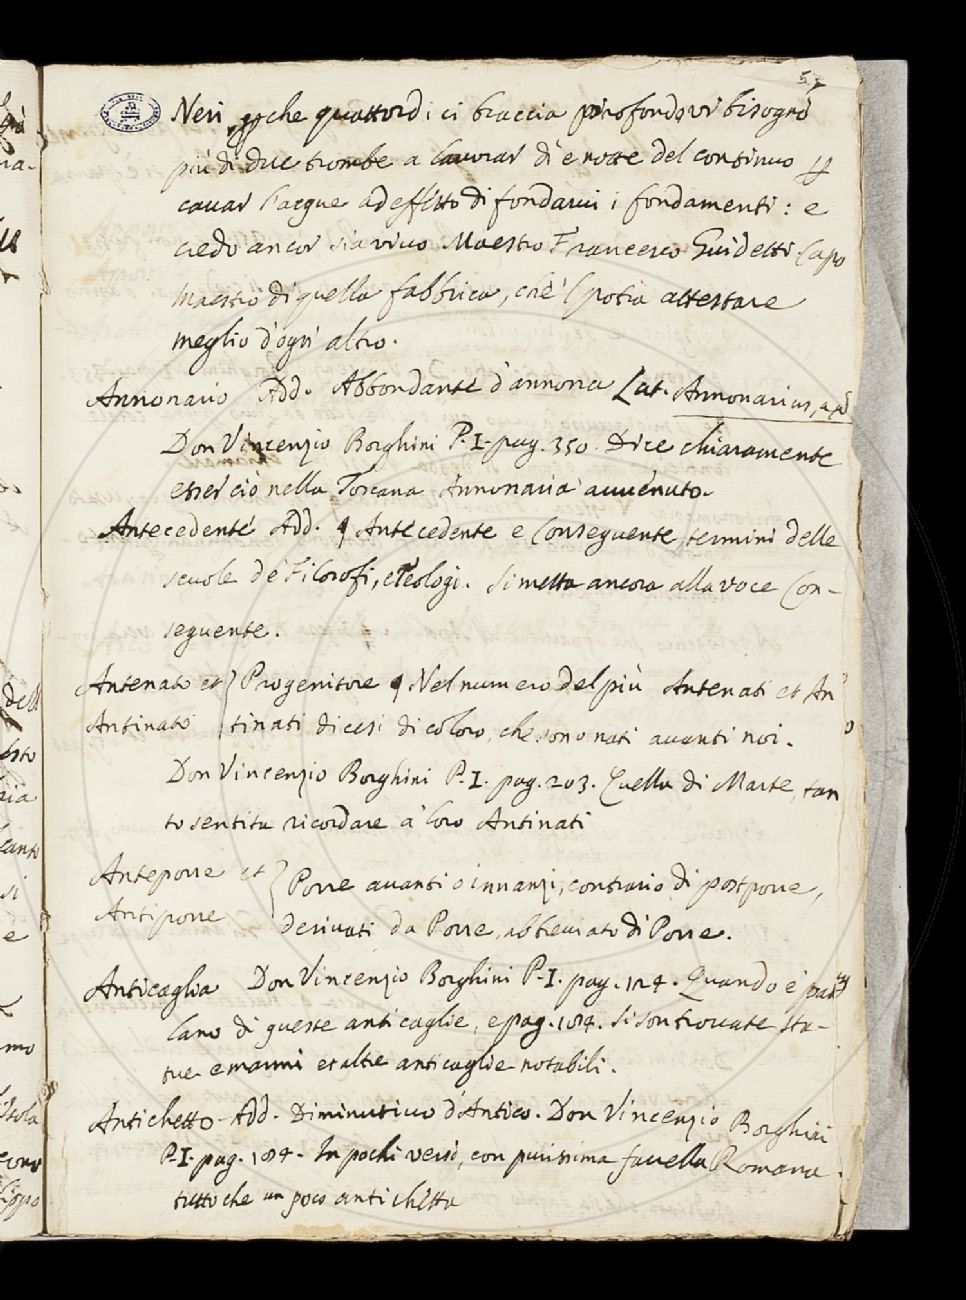 5
Neri che quattordici braccia profondo vi bisognò
più di due trombe a lavorar dì e notte del continuo
cavar l'acque ad effetto di fondarvi i fondamenti: e
credo ancor sia vivo Maestro Francesco Guidetti Capo
maestro di quella fabbrica, chè potria attestare
meglio d'ogn' altro.
Annonario Add. Abbondante d'annona Lat. Annonarius, a,
Don Vincenzio Borghini P. I. pag. 350. Dice chiaramente
esser ciò nella Toscana Annonaria avvenuto.
Antecedente Add. Antecedente e Conseguente, termini delle
scuole de' Filosofi, e Teologi. Si metta ancora alla voce Con-
seguente.
Antenato et } Progenitore Nel numero del più Antenati et An
Antinato tinati dicesi di coloro, che sono nati avanti noi.
Don Vincenzio Borghini P. I. pag. 203. Quella di Marte, tan
to sentita ricordare a' loro Antinati
Anteporre et } Porre avanti o innanzi, contrario di posporre,
Antiporre derivati da Porre, abbreviato di Ponere.
Anticaglia Don Vincenzio Borghini P. I. pag. 124. Quando e' par
lano di queste anticaglie, e pag. 184. Si son trovate sta-
tue e marmi et altre anticaglie notabili.
Antichetto Add. Diminutivo d'Antico. Don Vincenzio Borghini
P. I. pag. 184. In pochi versi, con purissima favella Romana
tutto che un poco antichetta